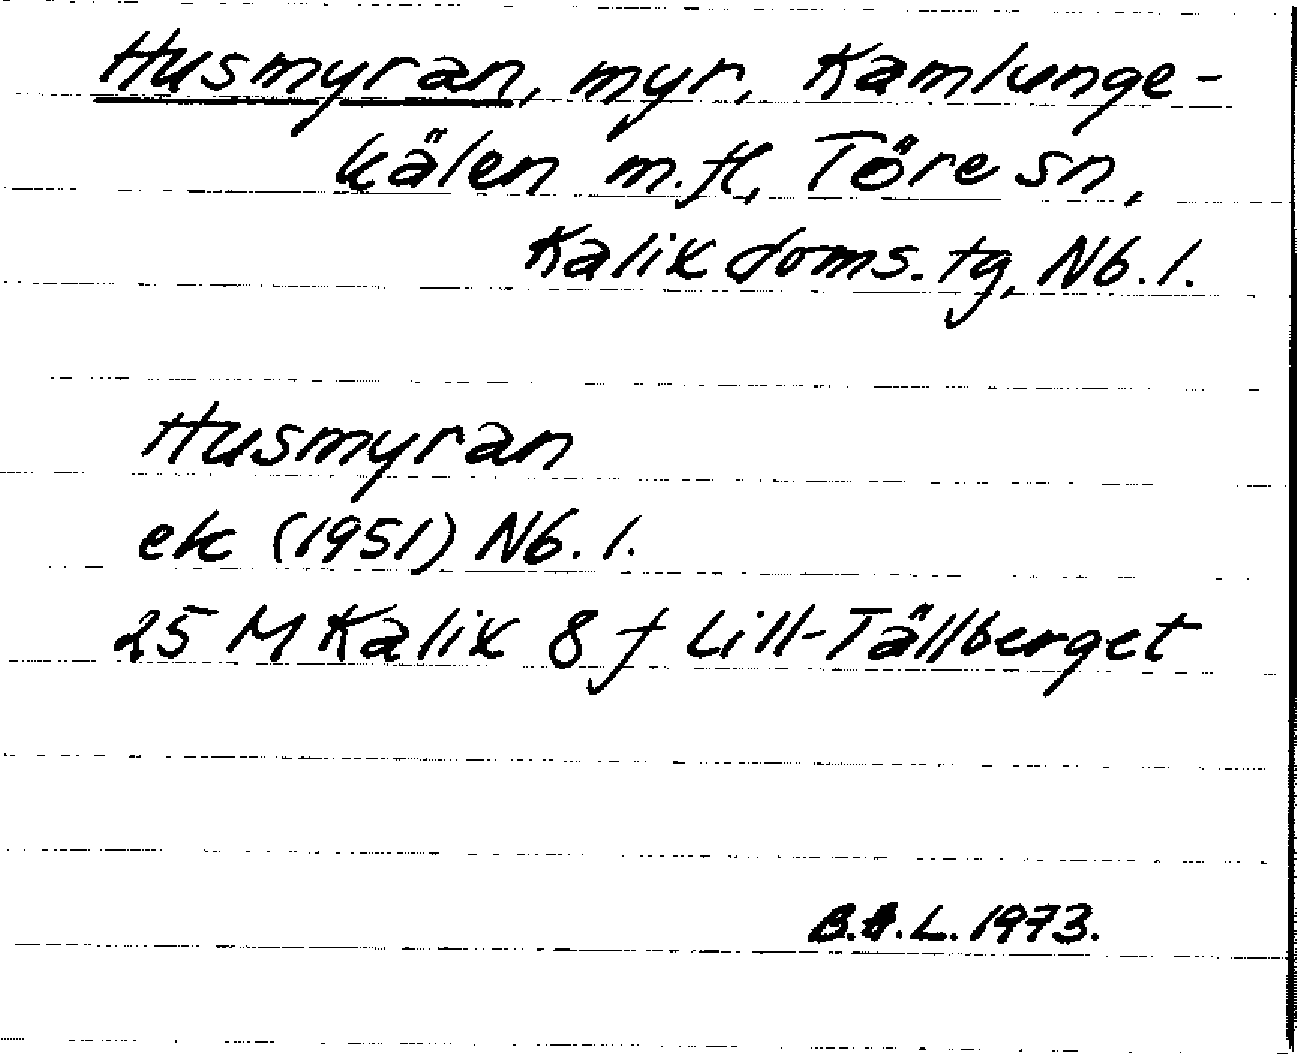 Husmyran, myr, Kamlunge-
kälen m.fl., Töre sn,
Kalix doms. tg, Nb. l.
Husmyran
ek (1951) Nb. l.
25 M Kalix 8 f Lill-Tällberget
B.H.L. 1973.